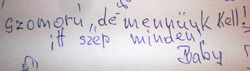 Szomorú, de mennünk kell!
itt szép minden
Baby